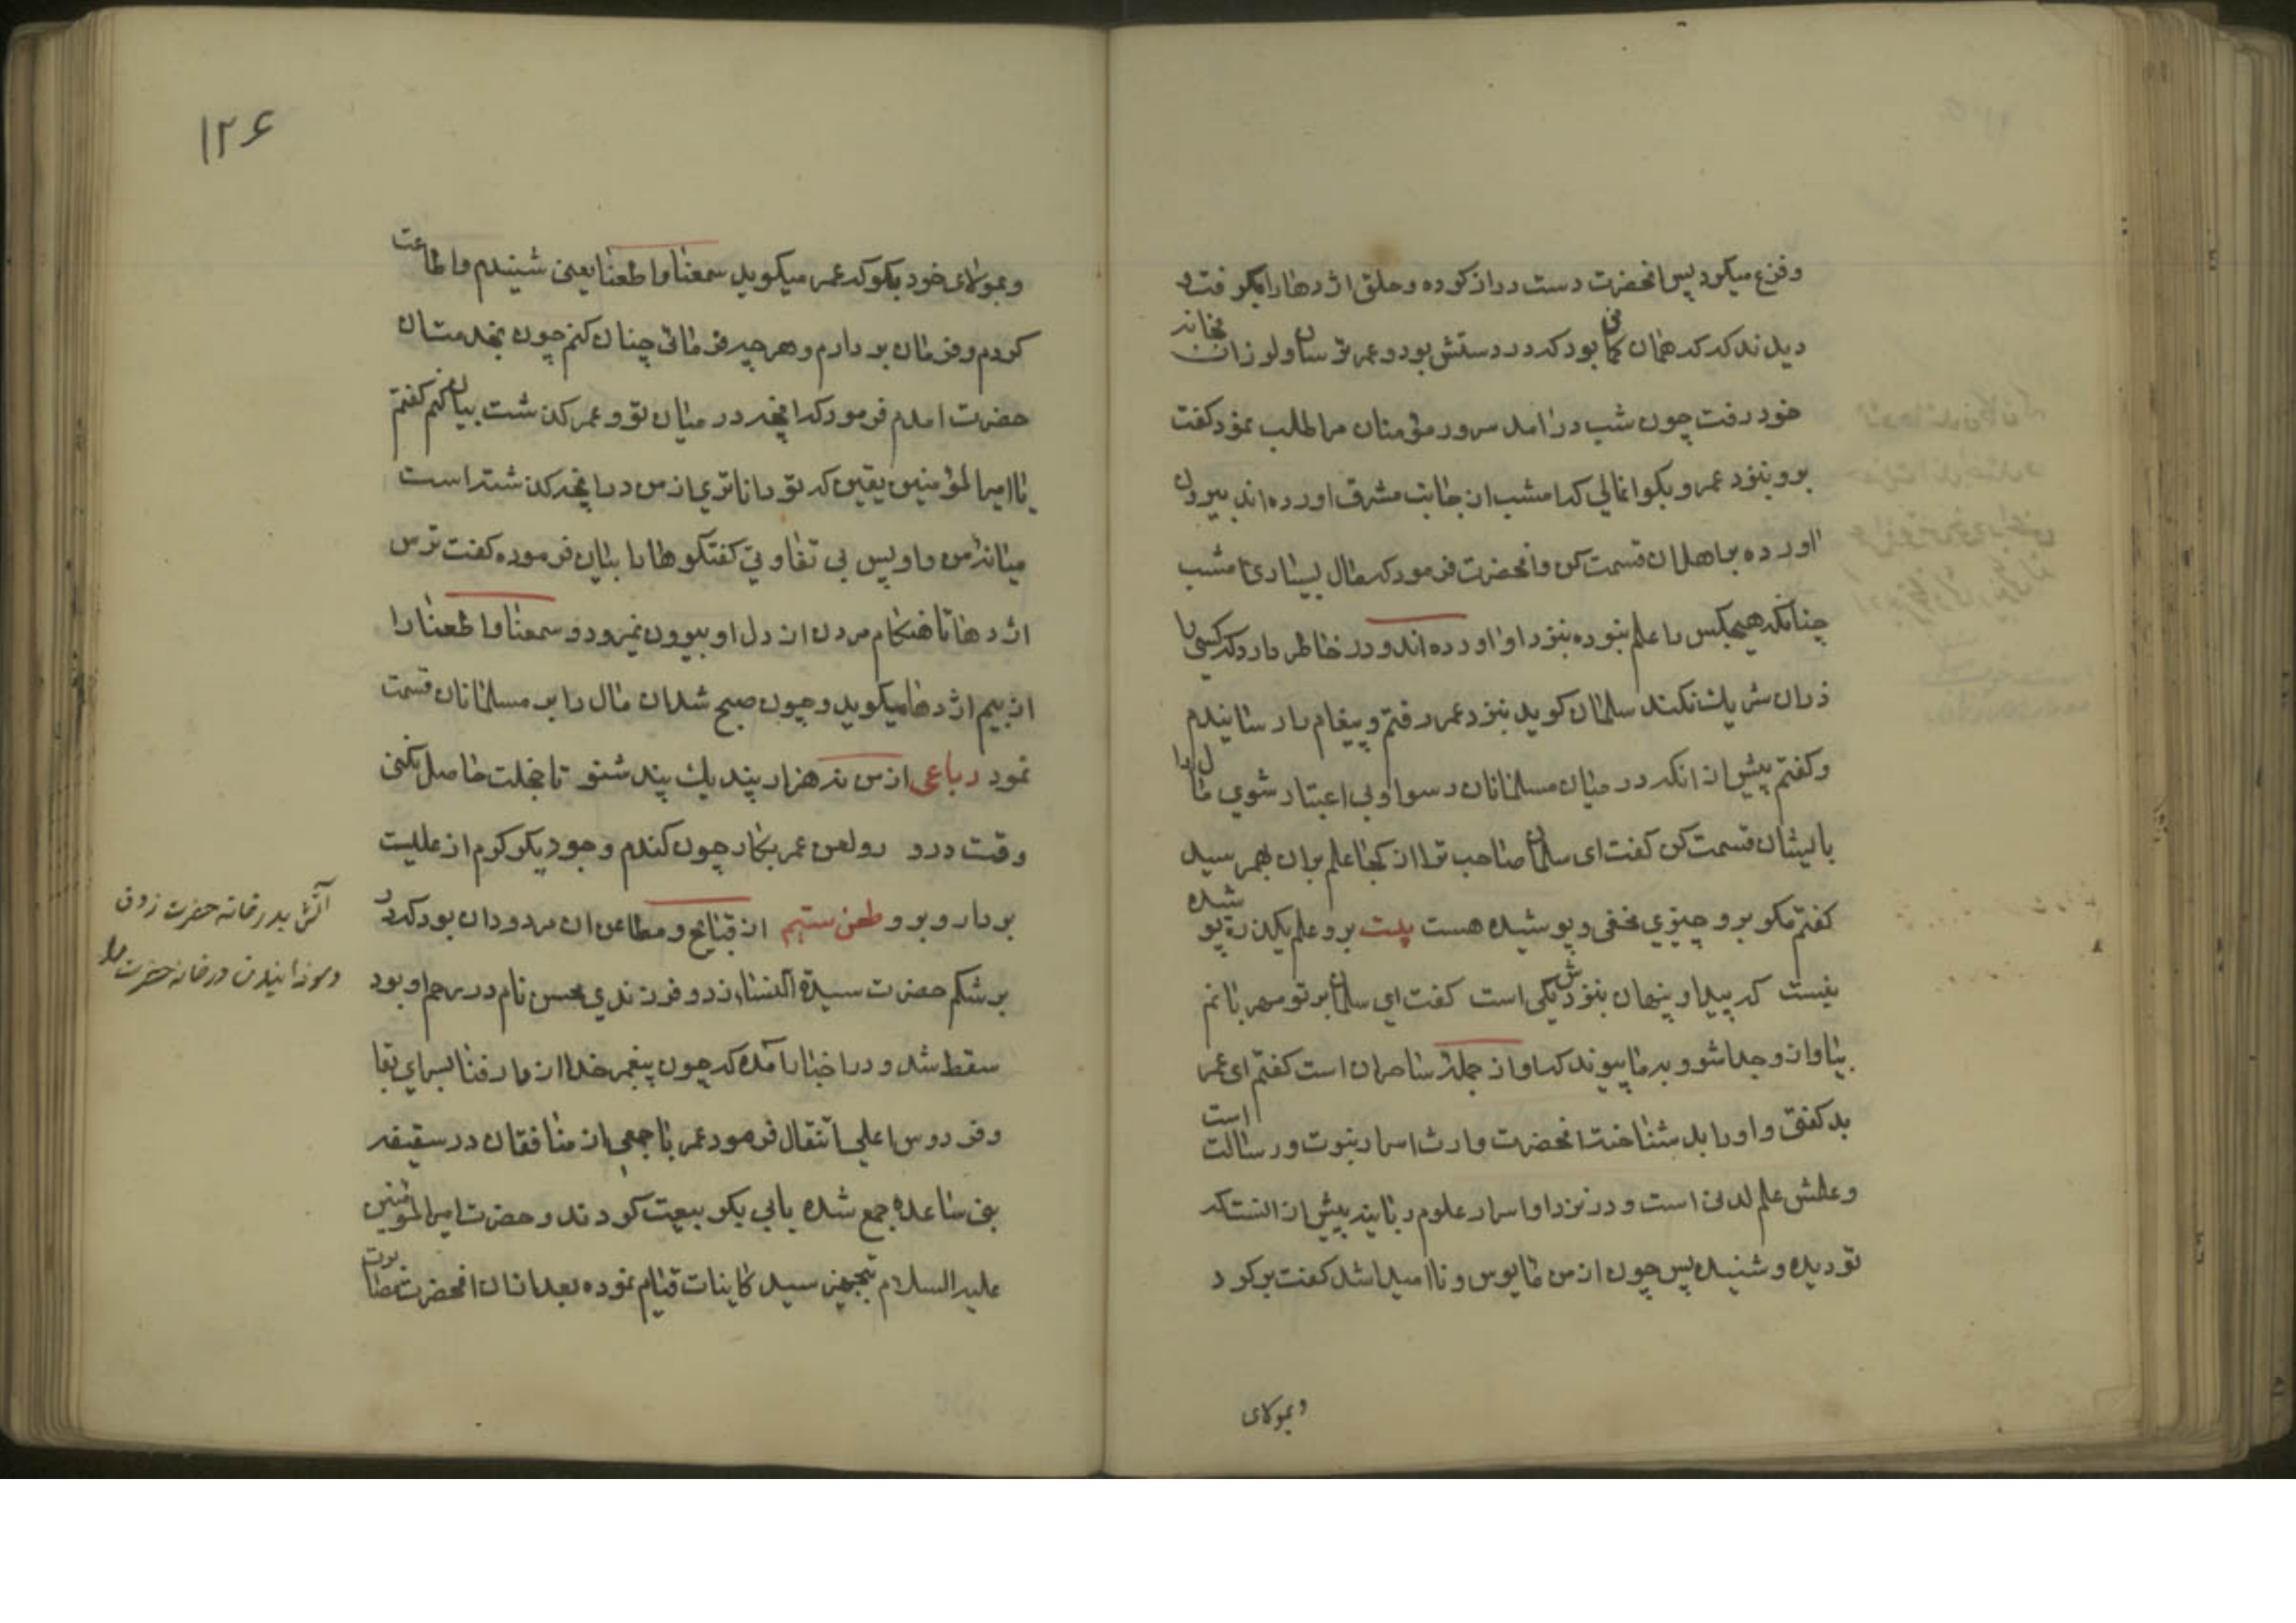 وفزع میکرد پس انحضرت دست دراز کرده و حلق اژدها را بگرفت و
دیدند که که همان کمانی بود که در دستش بود و عمر ترسان و لرزان بخانه
خود رفت چون شب درامد سرور مؤمنان مرا طلب نمود کفت
برو بنزد عمر و بکو انمالی که امشب از جانب مشرق اورده اند بیرون
اورده بر اهل ان قسمت کن و انحضرت فرمود که مال بسیاری امشب
چنانکه هیچکس را علم نبوده بنزد او اورده اند و در خاطر دارد که کسی را
دران شریك نکند سلمان کوید بنزد عمر رفتم و پیغام را رسانیدم
و کفتم پیش از انکه در میان مسلمانان رسوا و بی اعتبار شوی مال را
بایشان قسمت کن کفت ای سلمان صاحب ترا از کجا علم بران بهمرسید
کفتم مکو برو چیزی مخفی و پوشیده هست بیت برو علم یکذره پوشیده
نیست که پیدا و پنهان بنزدش یکی است کفت ای سلمان بر تو مهربانم
بیا و از و جدا شو و بدما پیوند که او از جمله ساحران است کفتم ای عمر
بد کفتی و او را بد شناخته انحضرت وارث اسرار نبوت و رسالت است
و علمش علم لدنی است و در نزد او اسرار علوم ربانیه پیش از انست که
تو دیده و شنیده پس چون از من مایوس و ناامید شد کفت برکرد
وبمولای
۱۲۶
وبمولای خود بکو که عمر میکوید سمعنا و اطعنا یعنی شنیدم و اطاعت
کردم و فرمان بردارم و هر چه فرمائی چنان کنم چون بخدمت ان
حضرت امدم فرمود که انچه در میان تو و عمر کذشت بیان کنم کفتم
یا امیرالمؤمنین یقین که تو داناتری از من در انچه کذشته است
میانه من و او پس بی تفاوتی کفتکوها را بیان فرموده کفت ترس
اژدها تا هنکام مردن از دل او بیرون نمیرود و سمعنا و اطعنا را
از بیم اژدها میکوید و چون صبح شد ان مال را بر مسلمانان قسمت
نمود رباعی از من نه هزار پند یك پند شنو تا خجلت حاصل نکنی
وقت درو رو لعن عمر بکار چون کندم و جو دیکر کرم از علیست
بردار و برو طعن ستیم از قبایح و مطاعن ان مردودان بود که در
بر شکم حضرت سیدة النساء زد و فرزندی محسن نام در رحم او بود
سقط شد و در اخبار آمده که چون پیغمبر خدا از دار فنا بسرای بقا
و فردوس اعلی انتقال فرمود عمر با جمعی از منافقان در سقیفه
بنی ساعده جمع شده بابی بکر بیعت کردند و حضرت امیرالمؤمنین
علیه السلام بتجهیز سید کاینات قیام نموده بعد ازان انحضرت
آتش بدر خانه حضرت زدن
در خانه حضرت